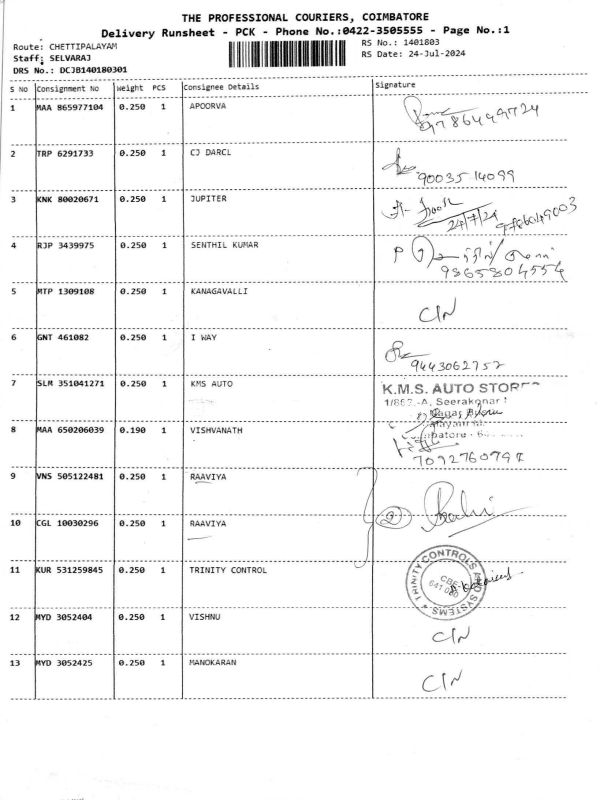 THE PROFESSIONAL COURIERS, COIMBATORE
Delivery Runsheet - PCK - Phone No.:0422-3505555 - Page No.:1
Route: CHETTIPALAYAM
RS No.: 1401803
Staff: SELVARAJ
RS Date: 24-Jul-2024
DRS No.: DCJB140180301
S No Consignment No Weight PCS Consignee Details Signature
1 MAA 865977104 0.250 1 APOORVA
9786499724
2 TRP 6291733 0.250 1 CJ DARCL
9003514099
3 KNK 80020671 0.250 1 JUPITER
24/7/24
4 RJP 3439975 0.250 1 SENTHIL KUMAR
9865804554
5 MTP 1309108 0.250 1 KANAGAVALLI
C/N
6 GNT 461082 0.250 1 I WAY
9443062752
7 SLM 351041271 0.250 1 KMS AUTO
K.M.S. AUTO STORES
8 MAA 650206039 0.190 1 VISHVANATH
7092760797
9 VNS 505122481 0.250 1 RAAVIYA
2
10 CGL 10030296 0.250 1 RAAVIYA
11 KUR 531259845 0.250 1 TRINITY CONTROL
TRINITY CONTROLS AND SYSTEMS
CBE
12 MYD 3052404 0.250 1 VISHNU
C/N
13 MYD 3052425 0.250 1 MANOKARAN
C/N